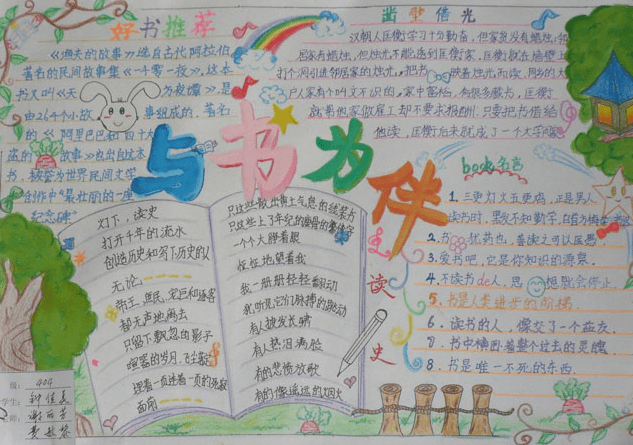 好书推荐
《渔夫的故事》选自古代阿拉伯
著名的民间故事集《一千零一夜》,这本
书又叫《天方夜谭》,是
由264个小故事组成的,著名
的《阿里巴巴和四十大
盗的故事》也出自这本
书,被誉为世界民间文学
创作中"最壮丽的一座
纪念碑"
凿壁借光
汉朝人匡衡学习十分勤奋,但家贫没有蜡烛,邻
居家有蜡烛,但烛光不能透到匡衡家,匡衡就在墙壁上
打个洞引进邻居家的烛光,把书映着烛光而读,同乡的大
户人家有个叫文不识的,家中富裕,有很多藏书,匡衡
就帮他家做雇工却不要求报酬,只要把书借给
他读,匡衡后来就成了一个大学
与书为伴
灯下,读史
打开千年的流水
创造历史和写下历史的人
无论
帝王,庶民,宠臣和逐客
都无声地离去
只留下飘忽的影子
喧嚣的岁月,飞尘
踩着一页连着一页的
面前
只这些散出黄土气息的线装书
只这些上了年纪的
一个大睁着眼
怔怔地望着我
我一册册轻轻翻动
我听见它们脉搏的跳动
有人披发长啸
有人热泪满脸
有的悲愤放歌
有的像遥远的烟火
读史
book名言
1.三更灯火五更鸡,正是男人
读书时,黑发不知勤学早,白首方悔读书迟
2.书犹药也,善读之可以医愚
3.爱书吧,它是你知识的源泉.
4.不读书de人,思想就会停止.
5.书是人类进步的阶梯.
6.读书的人,像交了一个益友.
7.书中横卧着整个过去的灵魂
8.书是唯一不死的东西.
级:404
学生:钟佳
老师:谢